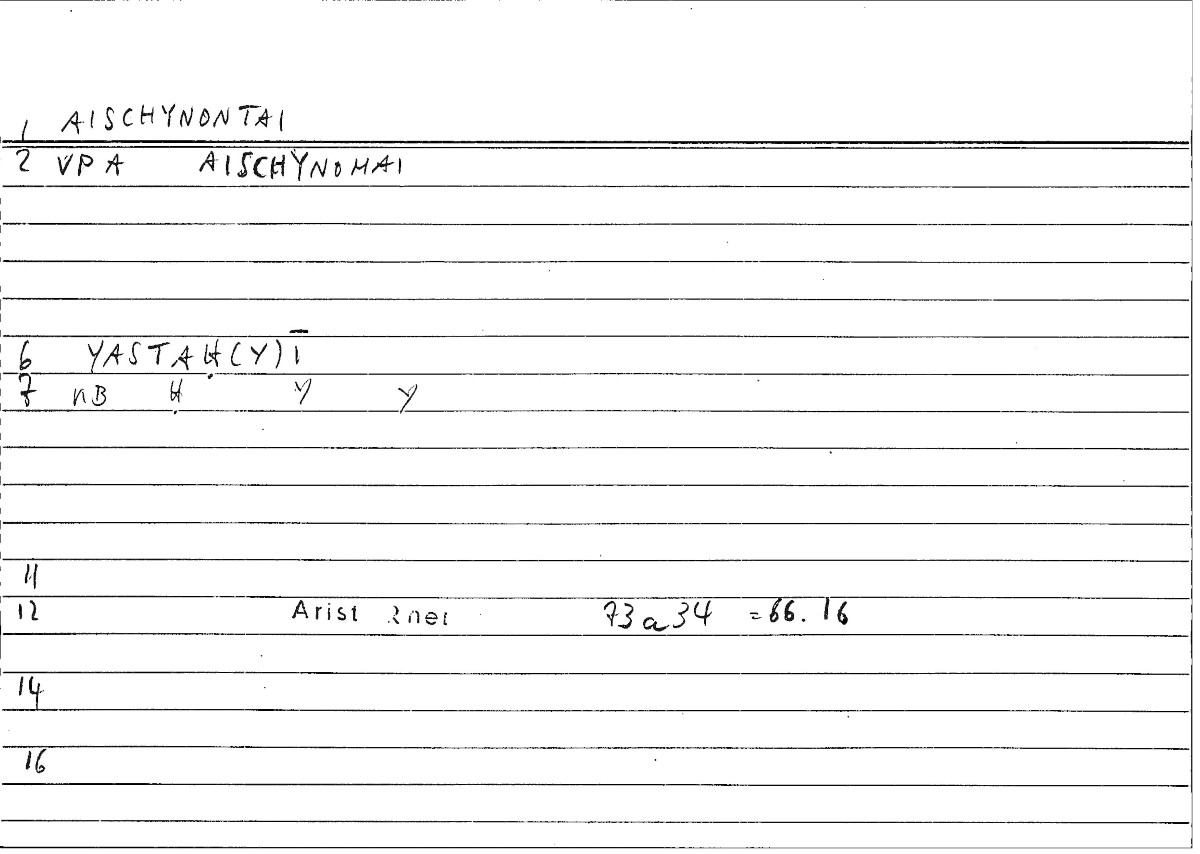 1 AISCHYNONTAI
2 VPA AISCHYNOMAI
6 YASTAḤ(Y)Ī
7 NB Ḥ Y Y
11
12 Arist Rhet 73a34 =66.16
14
16